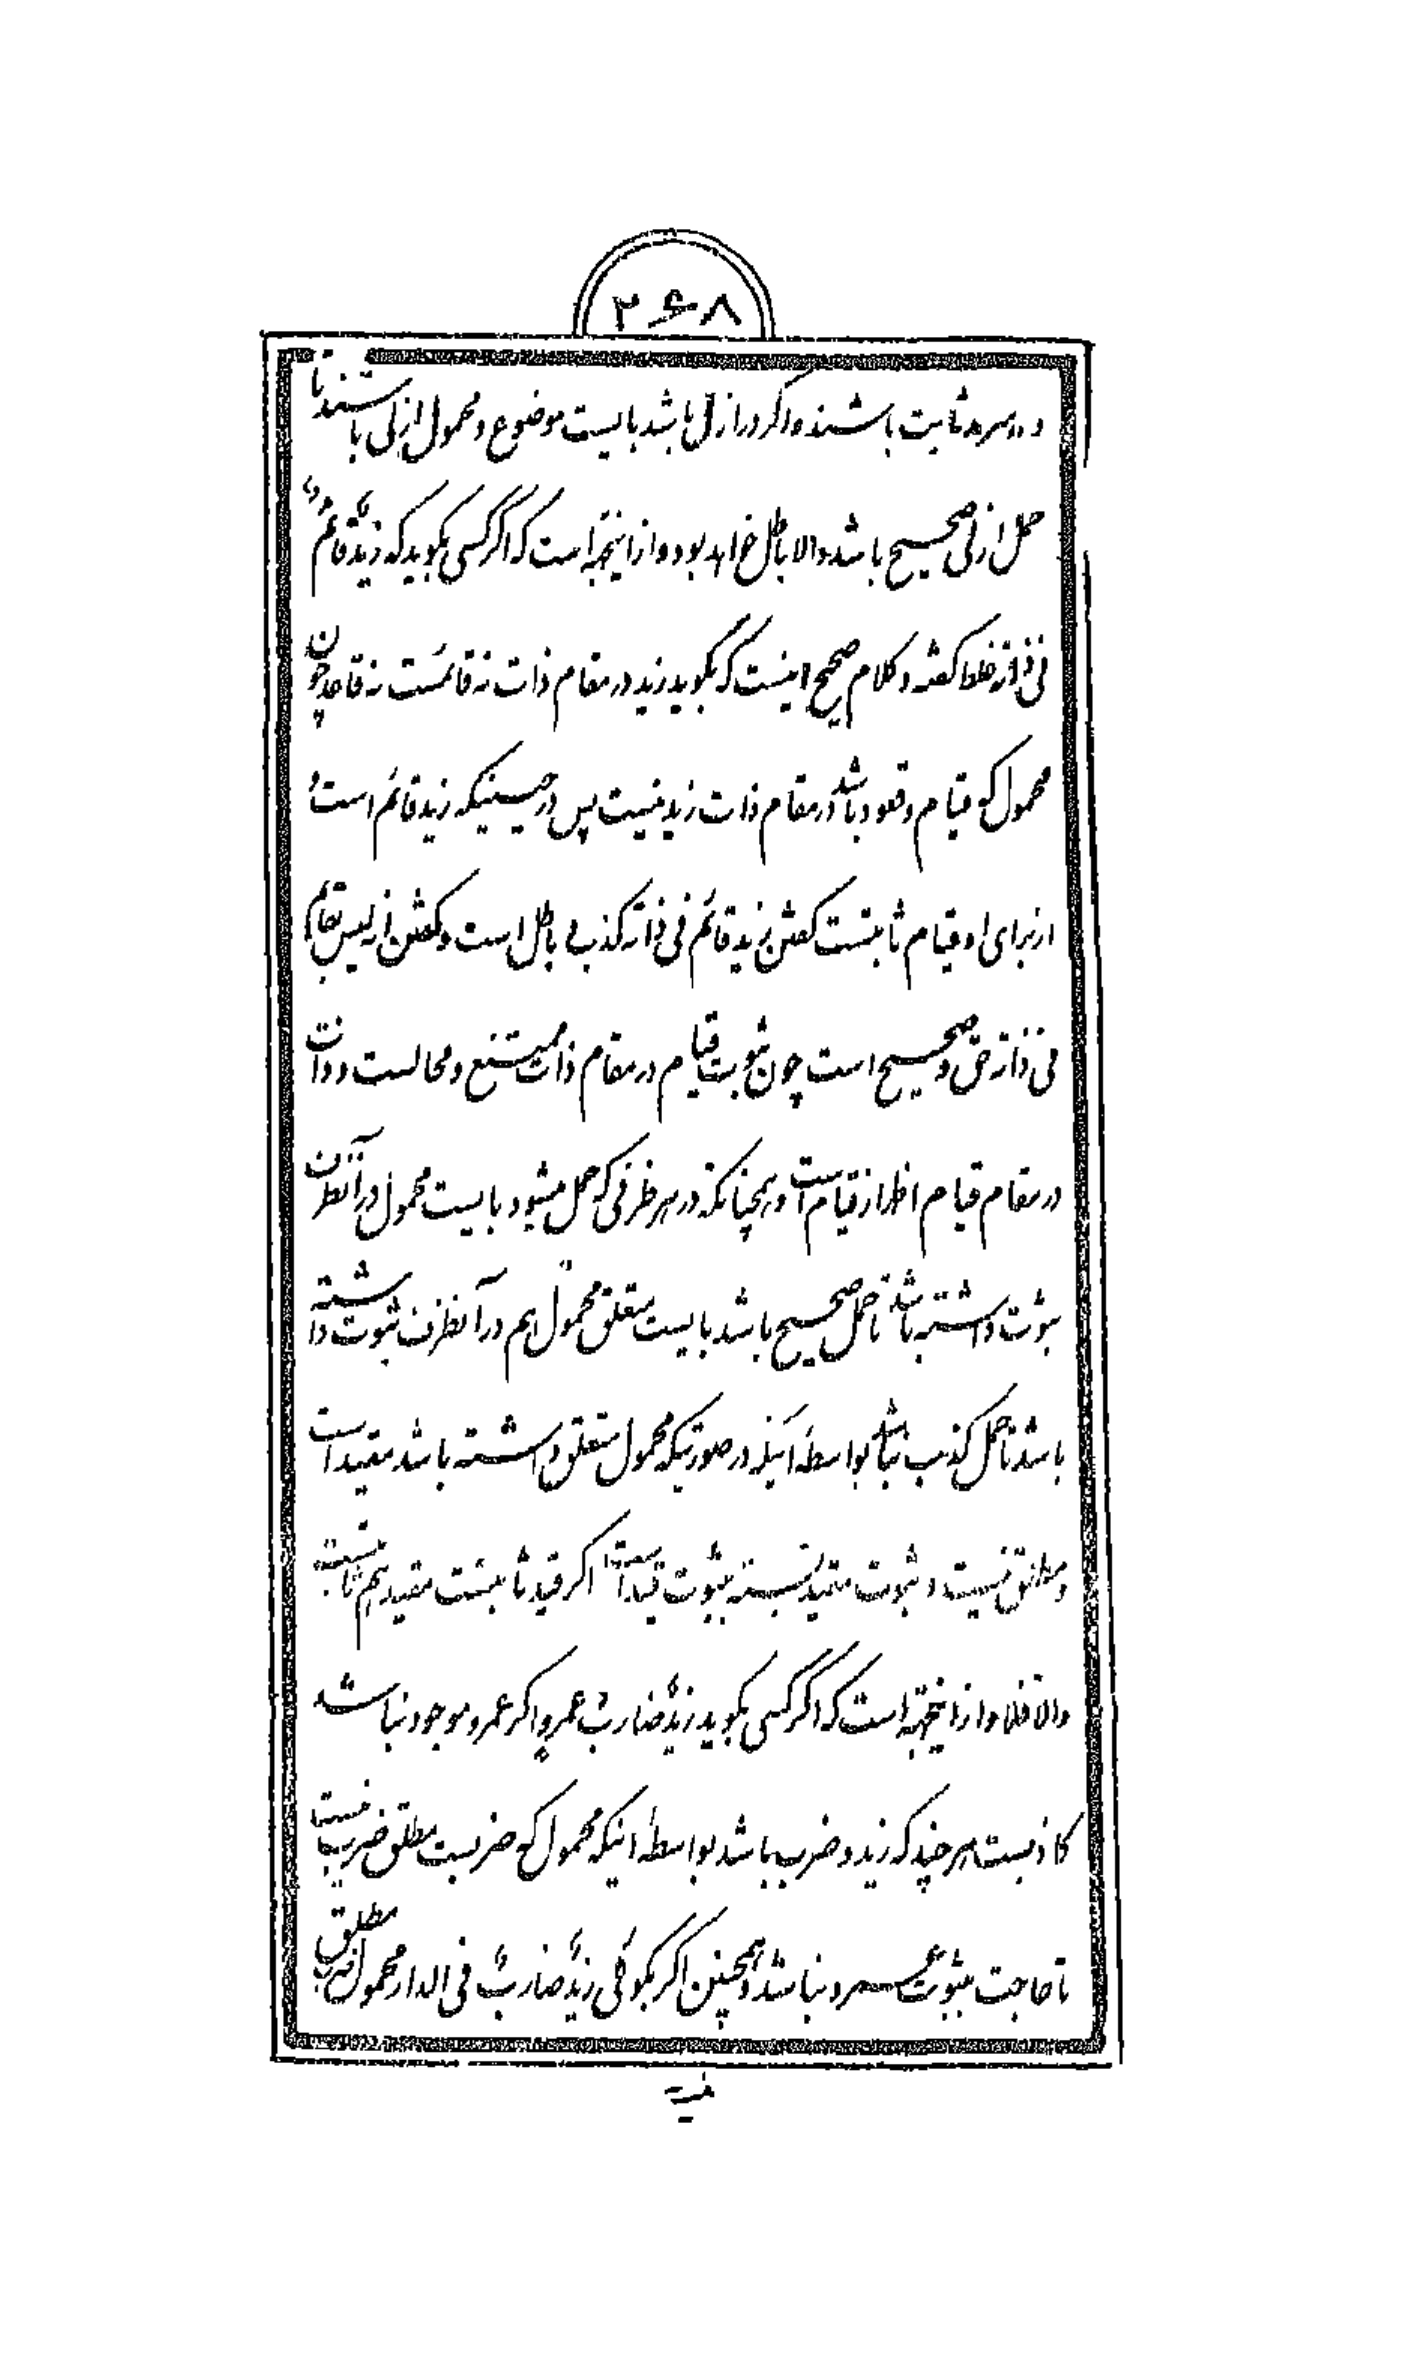 ۲۶۸
در سرمد ثابت باشند واگر در ازل باشد بایست موضوع و محمول ازلی باشند تا
حمل ازلی صحیح باشد والا باطل خواهد بود و از اینجهة است که اگر کسی بکوید که زیدٌ قائمٌ
فی ذاته غلط کفته و کلام صحیح اینست که بکوید زید در مقام ذات نه قائمست نه قاعد چون
محمول که قیام و قعود باشد در مقام ذات زید نیست پس در حینیکه زید قائم است و
از برای او قیام ثابتست کفتن زید قائم فی ذاته کذب و باطل است و کفتن انه لیس بقائم
فی ذاته حق و صحیح است چون ثبوت قیام در مقام ذات ممتنع و محالست و ذات
در مقام قیام اظهر از قیام است و همچنانکه در هر ظرفی که حمل میشود بایست محمول در آنظرف
ثبوت داشته باشد تا حمل صحیح باشد بایست متعلق محمول هم در آنظرف ثبوت داشته
باشد تا حمل کذب نباشد بواسطهٔ اینکه در صورتیکه محمول متعلق داشته باشد مقید است
و مطلق نیست و ثبوت مقید بسته بثبوت قید است اکر قید ثابتست مقید هم ثابتست
والا فلا و از اینجهة است که اگر کسی بکوید زیدٌ ضاربٌ عمروٍ اکر عمرو موجود نباشد
کاذبست هر چند که زید و ضرب باشد بواسطهٔ اینکه محمول که ضربست مطلق ضرب نیست
تا حاجت بثبوت عمرو نباشد و همچنین اکر بکوئی زیدٌ ضاربٌ فی الدار محمول مطلق ضرب
نیست